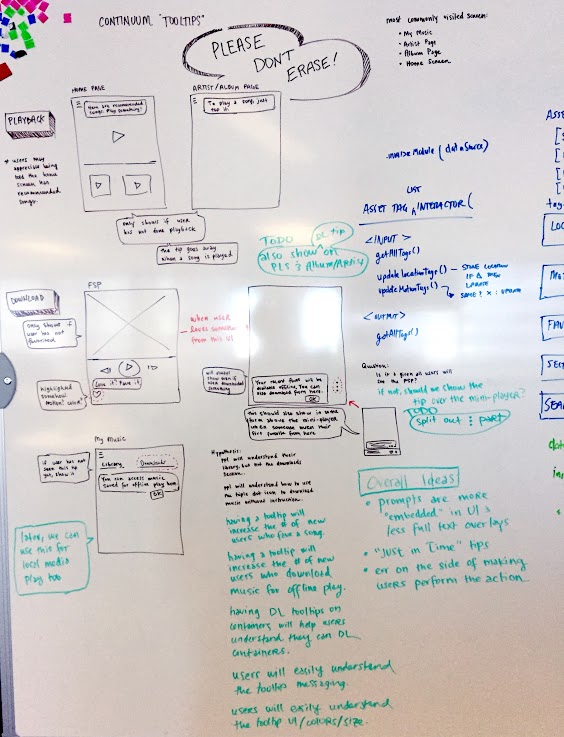 CONTINUUM "TOOLTIPS"
PLEASE
DON'T
ERASE!
most commonly visited screens:
• My Music
• Artist Page
• Album Page
• Home Screen
HOME PAGE
ARTIST/ALBUM PAGE
PLAYBACK
Here are recommended
songs. Play something!
To play a song, just
tap it!
* users may
appreciate being
told the home
screen has
recommended
songs.
only shows if user
has not done playback
the tip goes away
when a song is played
TODO
DL tip
also show on
PLS & Album/Artist
DOWNLOAD
FSP
only shows if
user has not
favorited
when user
faves something
from this UI
Love it? Fave it
highlighted
somehow
motion? color?
will
show even if
downloaded something
Your recent faves will be
available offline. You can
also download from here
OK
this should also show in some
form above the mini-player
when someone makes their
first favorite from here
My Music
if user has not
seen this tip
yet, show it
Library
Downloads
You can access music
saved for offline play here
OK
later, we can
use this for
local media
play too
Hypothesis:
ppl will understand their
library, but not the downloads
section.
ppl will understand how to use
the triple dot icon to download
music without instruction.
having a tooltip will
increase the # of new
users who fave a song.
having a tooltip will
increase the # of new
users who download
music for offline play.
having DL tooltips on
containers will help users
understand they can DL
containers.
users will easily understand
the tooltip messaging.
users will easily understand
the tooltip UI/colors/size.
Question:
Is it a given all users will
see the FSP?
if not, should we show the
tip over the mini-player?
TODO
Split out ⋮ part
Overall Ideas
• prompts are more
"embedded" in UI &
less full text overlays
• "Just in Time" tips
• err on the side of making
users perform the action
Module (dataSource)
LIST
ASSET TAG ^ INTERACTOR (
<INPUT>
getAllTags()
updateLocationTags() — STORE LOCATION
IF A NEW
UPDATE
updateMotionTags() → SAME? X : UPDATE
<OUTPUT>
gotAllTags()
ASSE
LOC
MOT
FAV
SEC
SEA